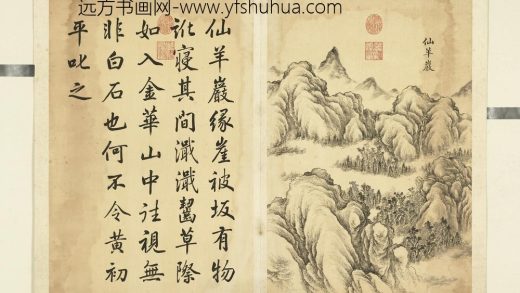 远方书画网- www.yfshuhua.com
仙羊巖
仙羊巖緣崖被坂有物
訛寢其間濈濈齧草際
如入金華山中往視無
非白石也何不令黃初
平叱之